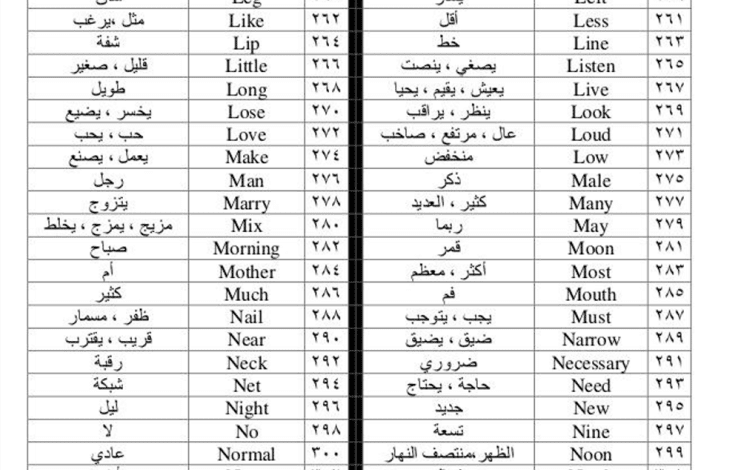 Left Leg
٢٦١ Less أقل ٢٦٢ Like مثل ،يرغب
٢٦٣ Line خط ٢٦٤ Lip شفة
٢٦٥ Listen يصغي ، ينصت ٢٦٦ Little قليل ، صغير
٢٦٧ Live يعيش ، يقيم ، يحيا ٢٦٨ Long طويل
٢٦٩ Look ينظر ، يراقب ٢٧٠ Lose يخسر ، يضيع
٢٧١ Loud عال ، مرتفع ، صاخب ٢٧٢ Love حب ، يحب
٢٧٣ Low منخفض ٢٧٤ Make يعمل ، يصنع
٢٧٥ Male ذكر ٢٧٦ Man رجل
٢٧٧ Many كثير ، العديد ٢٧٨ Marry يتزوج
٢٧٩ May ربما ٢٨٠ Mix مزيج ، يمزج ، يخلط
٢٨١ Moon قمر ٢٨٢ Morning صباح
٢٨٣ Most أكثر ، معظم ٢٨٤ Mother أم
٢٨٥ Mouth فم ٢٨٦ Much كثير
٢٨٧ Must يجب ، يتوجب ٢٨٨ Nail ظفر ، مسمار
٢٨٩ Narrow ضيق ، يضيق ٢٩٠ Near قريب ، يقترب
٢٩١ Necessary ضروري ٢٩٢ Neck رقبة
٢٩٣ Need حاجة ، يحتاج ٢٩٤ Net شبكة
٢٩٥ New جديد ٢٩٦ Night ليل
٢٩٧ Nine تسعة ٢٩٨ No لا
٢٩٩ Noon الظهر ،منتصف النهار ٣٠٠ Normal عادي